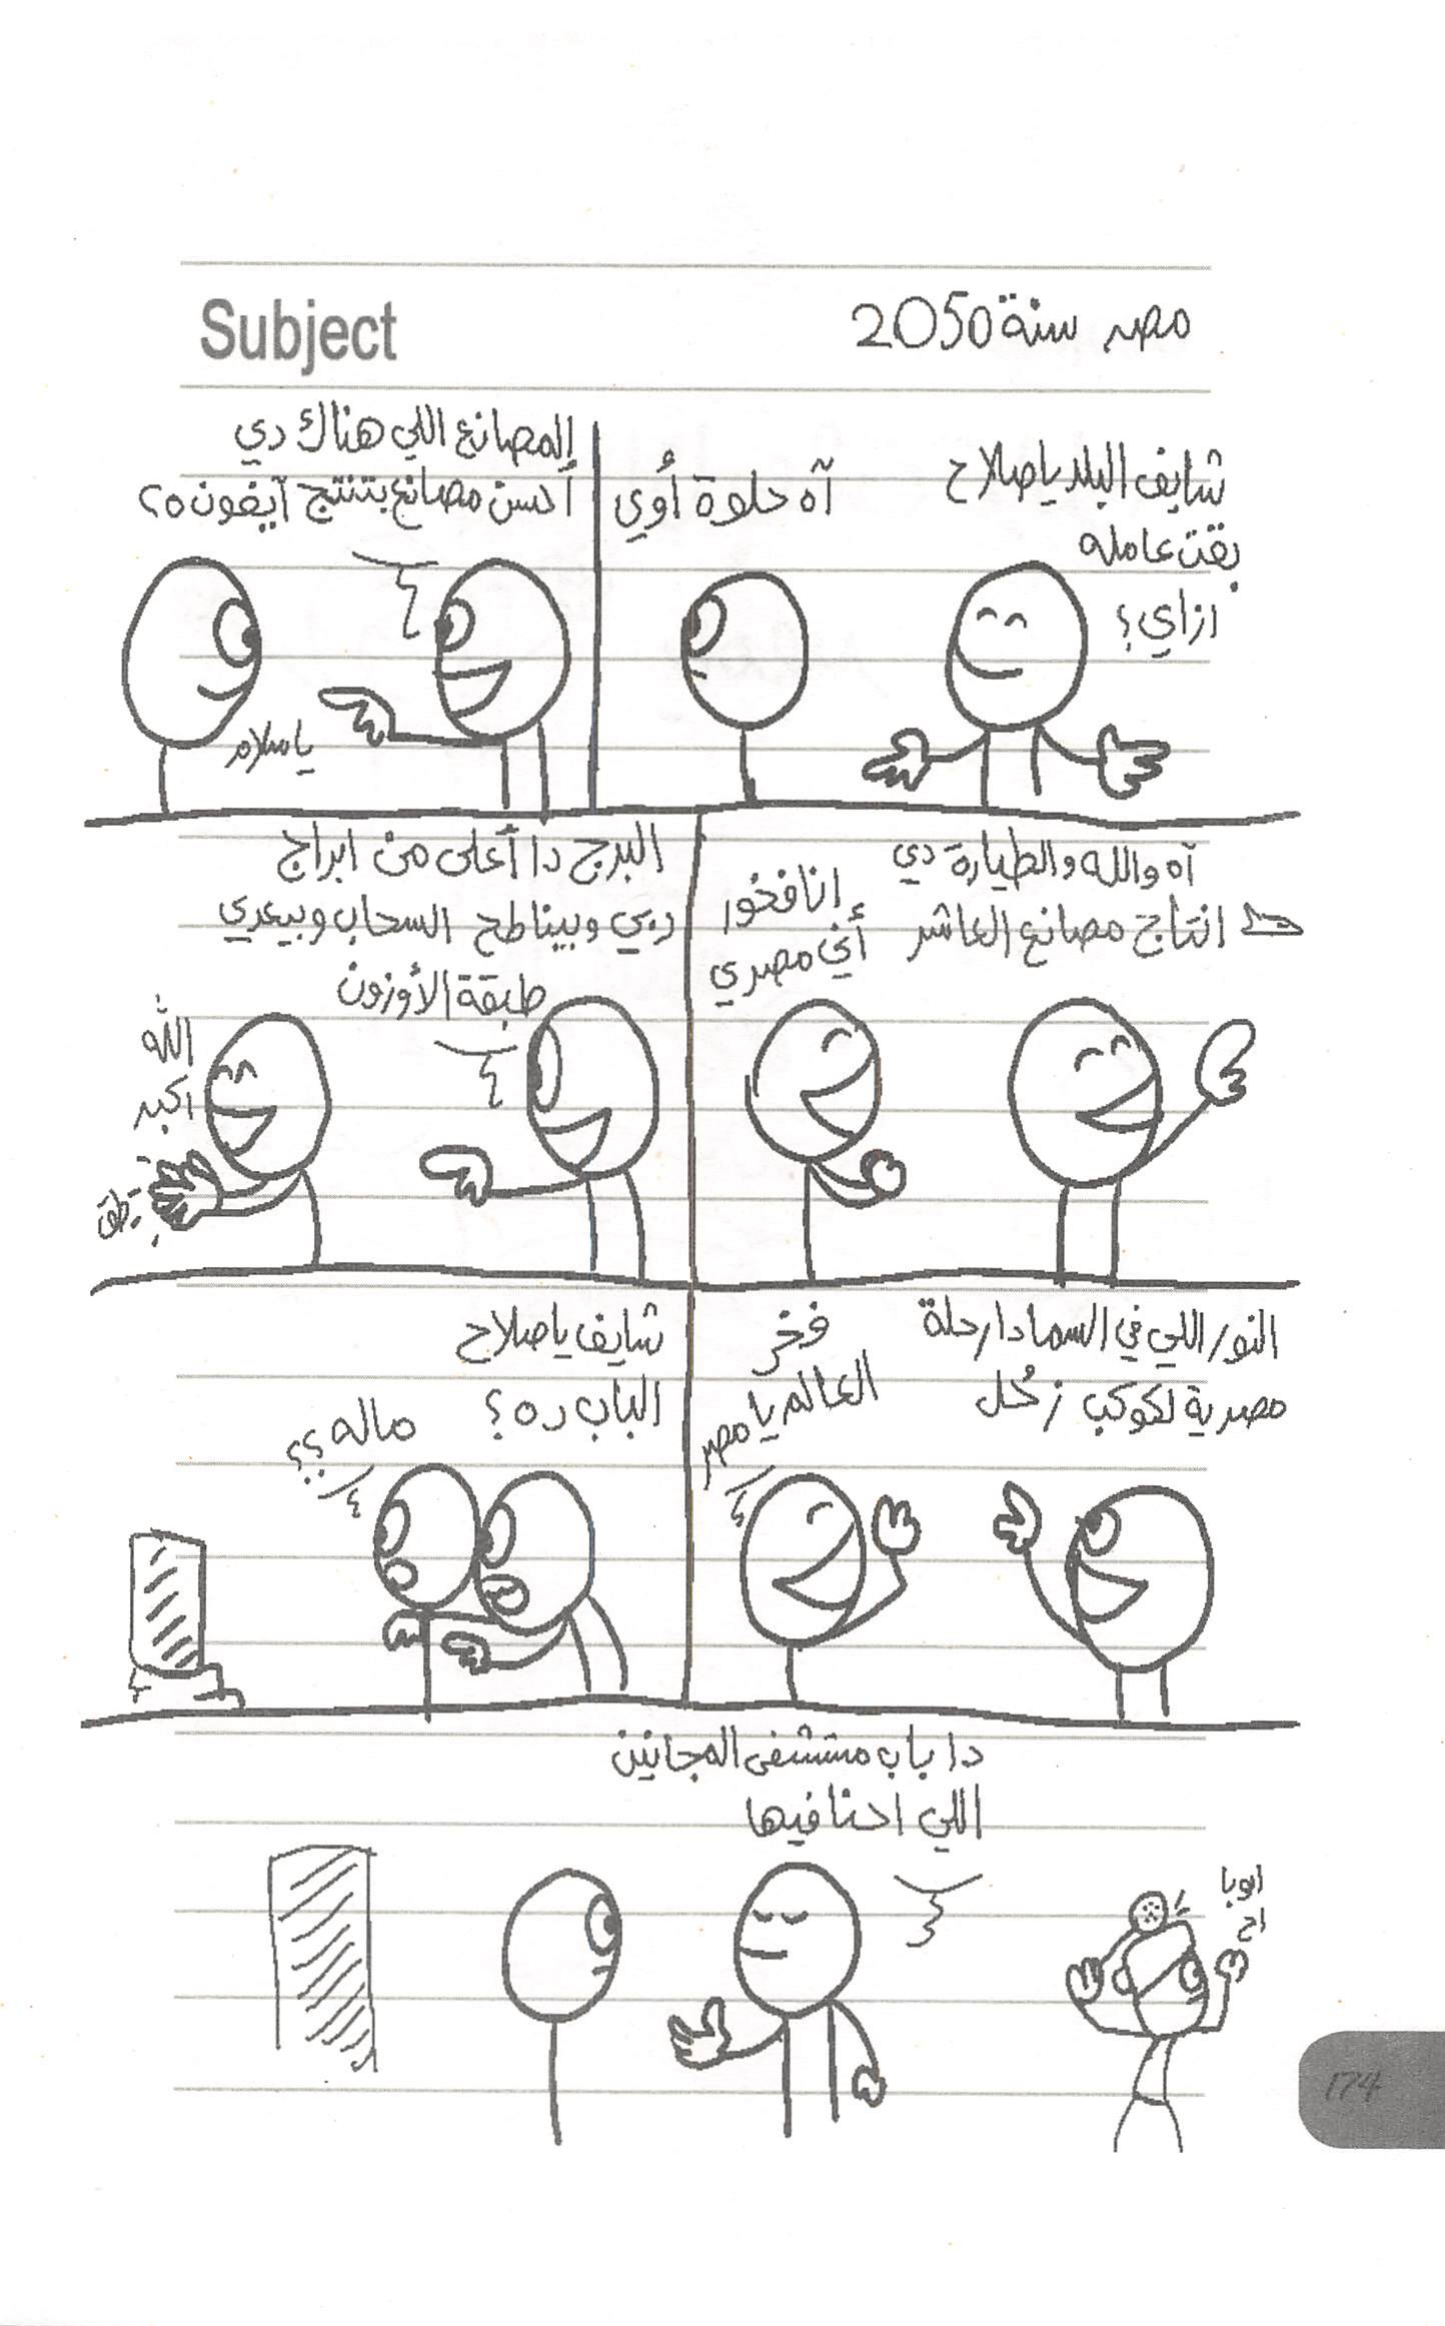 Subject
مصر سنة 2050
شايف البلد يا صلاح
بقت عامله
ازاي؟
آه حلوة أوي
المصانع اللي هناك دي
أحسن مصانع بتنتج آيفون ٥؟
يا سلام
آه والله والطيارة دي
انتاج مصانع العاشر
انا فخور
أني مصري
البرج دا أعلى من ابراج
دبي وبيناطح السحاب وبيعدي
طبقة الأوزون
الله
اكبر
طق
النور اللي في السما دا رحلة
مصرية لكوكب زُحل
فخر
العالم يا مصر
شايف يا صلاح
الباب ده؟
ماله؟؟
دا باب مستشفى المجانين
اللي احنا فيها
اوبا
اح
174